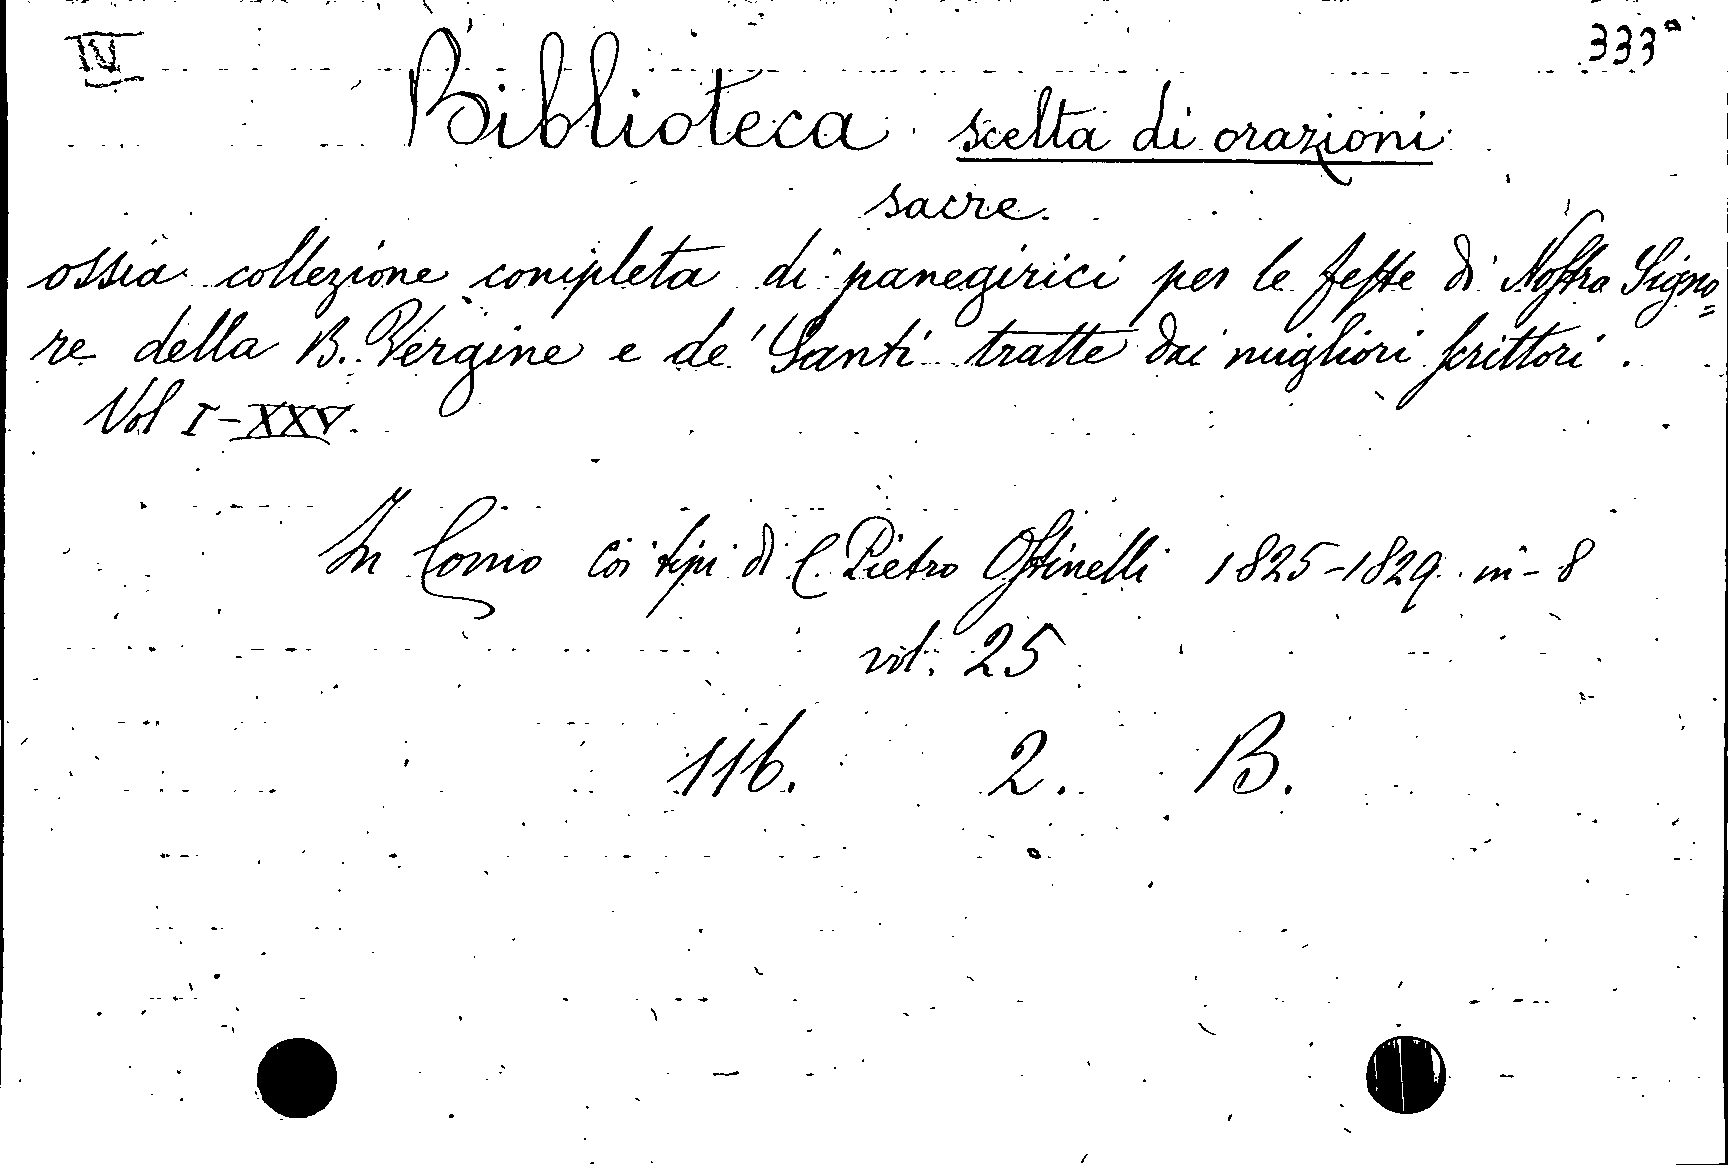 IV 333a
Biblioteca scelta di orazioni
sacre.
ossia collezione completa di panegirici per le feste di Nostro Signo=
re della B. Vergine e de' Santi tratte dai migliori scrittori.
Vol I-XXV.
In Como coi tipi di C. Pietro Ostinelli 1825-1829. in-8
vol. 25
116. 2. B.